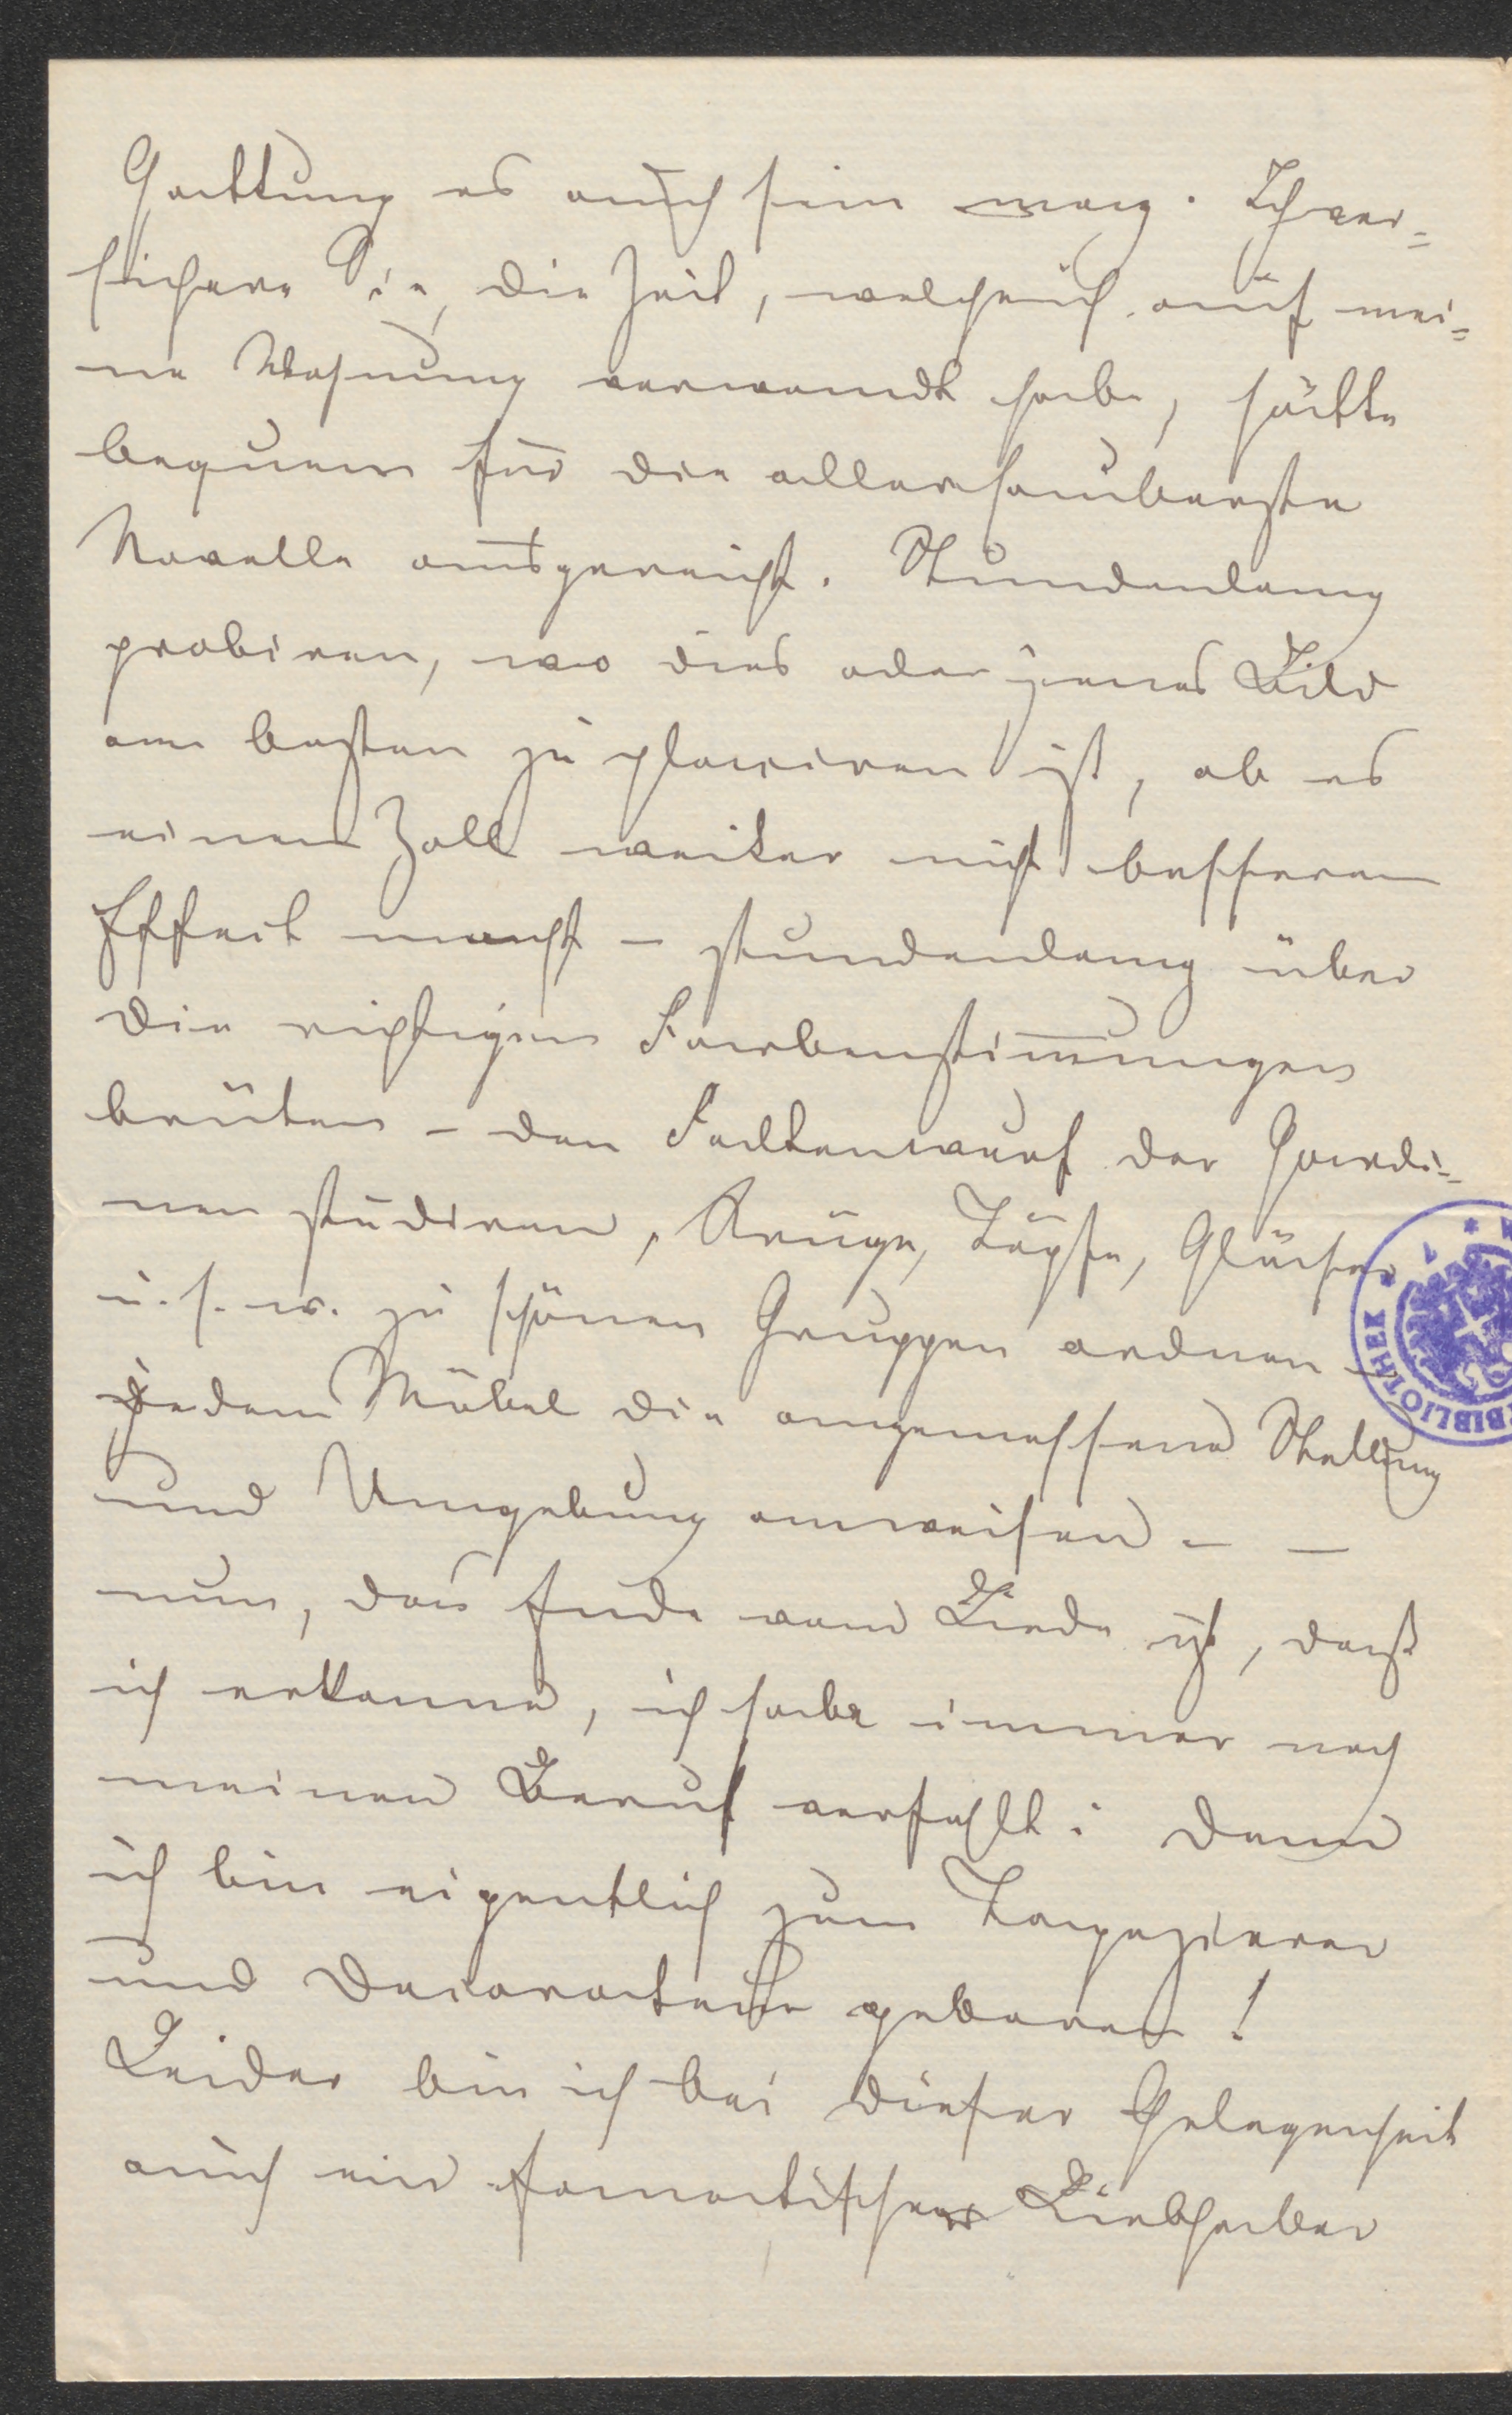 Gattung es auch sein mag. Ich ver=
sichere Sie, die Zeit, welche ich auf mei=
ne Wohnung verwandt habe, hätte
bequem für die allersauberste
Novelle ausgereicht. Stundenlang
probiren, wo dies oder jenes Bild
am besten zu placiren ist, ob es
einen Zoll weiter nicht besseren
Effect macht – stundenlang über
die richtigen Farbenstimmungen
brüten – den Faltenwurf der Gardi=
nen studiren, Krüge, Töpfe, Gläser
u. s. w. zu schönen Gruppen ordnen –
jedem Möbel die angemessene Stellung
und Umgebung anweisen – –
nun, das Ende vom Liede ist, daß
ich erkenne, ich habe immer noch
meinen Beruf verfehlt: denn
ich bin eigentlich zum Tapezierer
und Decorateur geboren!
Leider bin ich bei dieser Gelegenheit
auch ein fanatischer Liebhaber
BIBLIOTHEK